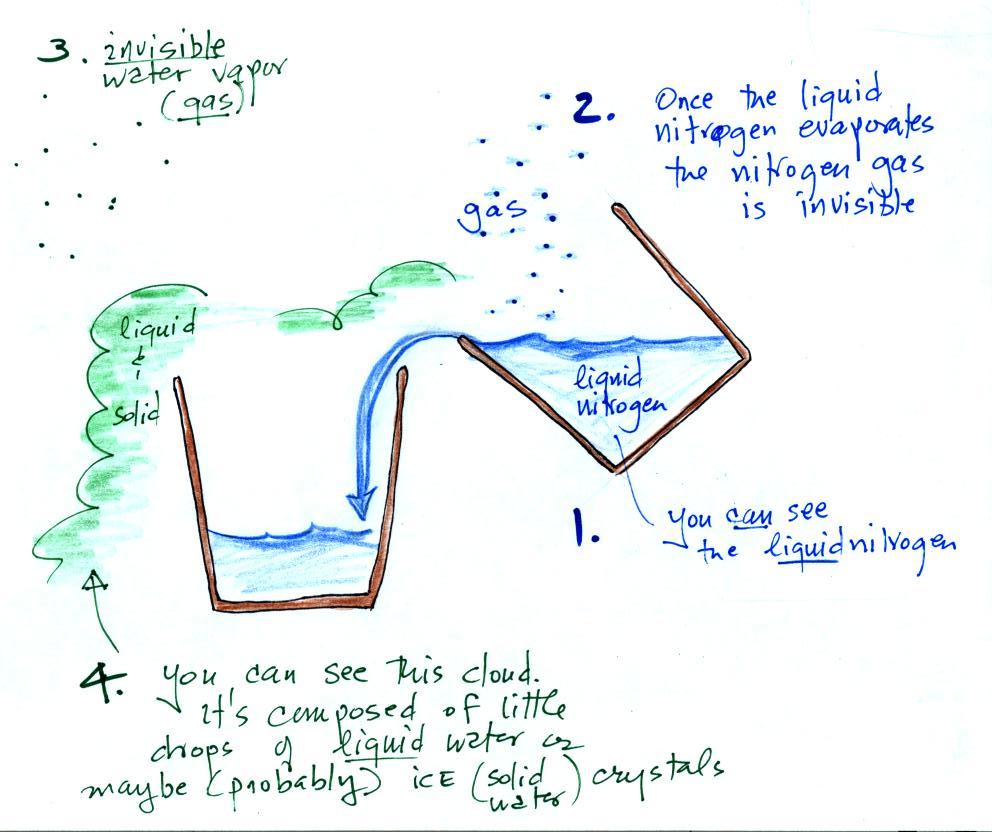 3. invisible
water vapor
(gas)
2. Once the liquid
nitrogen evaporates
the nitrogen gas
is invisible
gas
liquid
&
solid
liquid
nitrogen
1. you can see
the liquid nitrogen
4. you can see this cloud.
it's composed of little
drops of liquid water or
maybe (probably) ice (solid
water) crystals